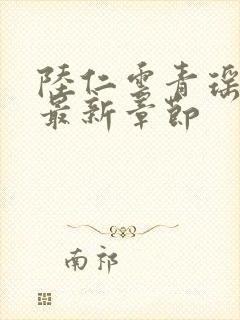 陸仁雲青瑶
最新章節
南祁